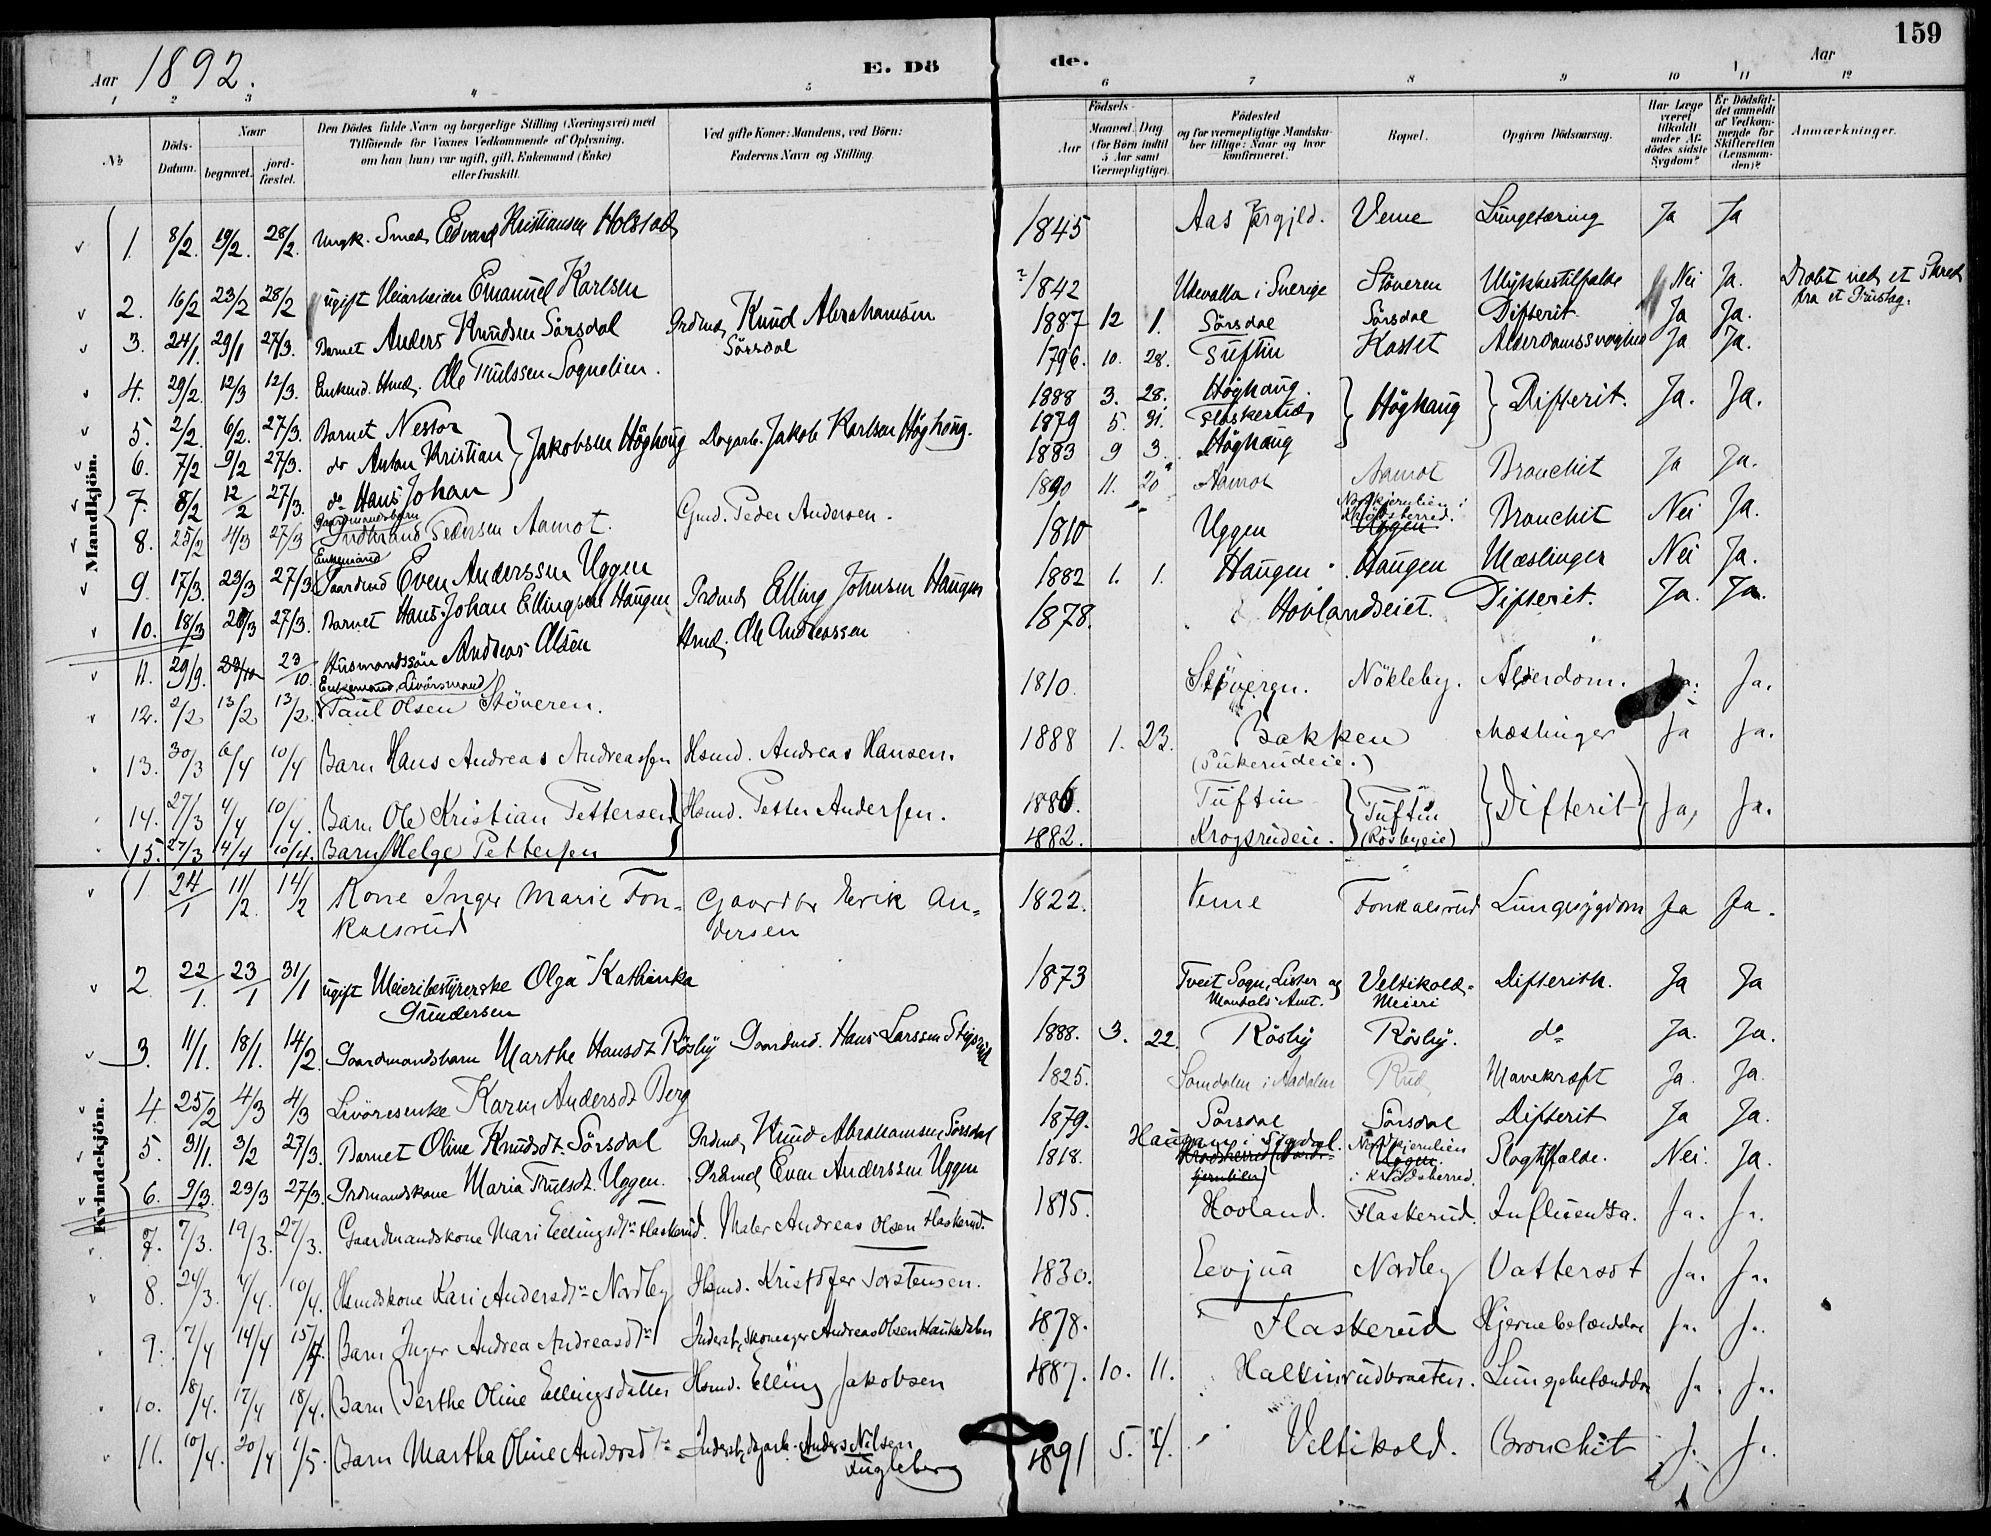 159
Aar 1892. E. Dö de. Aar
1 2 3 4 5 6 7 8 9 10 11 12
No
Döds-Datum.
Naar
begravet.
jord-fæstet.
Den Dödes fulde Navn og borgerlige Stilling (Næringsvei) med
Tilföiende for Voxnes Vedkommende af Oplysning,
om han (hun) var ugift, gift, Enkemand (Enke)
eller fraskilt.
Ved gifte Koner: Mandens, ved Börn:
Faderens Navn og Stilling.
Födsels-
Aar
Maaned. Dag
(for Börn indtil
5 Aar samt
Værnepligtige).
Födested
og for værnepligtige Mandska-
ber tillige: Naar og hvor
konfirmeret.
Bopæl.
Opgiven Dödsaarsag.
Har Læge
været
tilkaldt
under Af-
dödes sidste
Sygdom?
Er Dödsfal-
det anmeldt
af Vedkom-
mende for
Skifteretten
(Lensman-
den)?
Anmærkninger.
Mandkjön.
1. 8/2. 19/2. 28/2. Ungk. Smed Edvard Kristiansen Holstad 1845 Aas Veme Lungetæring Ja Ja
2. 16/2 23/2 28/2 ugift Veiarbeider Emanuel Karlsen 1842 Udevalla i Sverige Stöveren Ulykkestilfælde Nei Ja. Dræbt ved et Skred
fra et
3. 24/1. 29/1 27/3. Barnet Anders Knudsen Sörsdal Grdmd. Knud Abrahamsen
Sörsdal 1887 12 1. Sörsdal Sörsdal Difterit Ja Ja.
4. 29/2. 12/3 12/3. Enkmd. Hmd. Ole Trulssen Sognelien. 1796. 10. 28. Tuftin Kasset Alderdomssvaghed Ja Ja.
5. 2/2. 6/2. 27/3. Barnet Nestor Jakobsen Höghaug Dagarb. Jakob Karlsen Höghaug. 1888 3. 28. Höghaug Höghaug Difterit. Ja. Ja.
6. 7/2 9/2 27/3. do Anton Kristian 1879 5. 31. Flaskerud
7. 8/2 12/2 27/3. do Hans Johan 1883 9 3. Höghaug
8. 25/2 4/3 27/3 Gaardmandsbarn
Gudbrand Pedersen Aamot. Gmd. Peder Andersen. 1890 11. 20 Aamot Aamot Bronchit Ja Ja.
9. 17/3. 23/3 27/3. Enkemand
Gaardmd Even Anderssen Uggen 1810 Uggen Nordkjernlien i
Krödsherred.
Uggen Bronchit Nei Ja.
10. 18/3 26/3 27/3. Barnet Hans Johan Ellingsen Haugen Grdmd. Elling Johnsen Haugen 1882 1. 1. Haugen Haugen Mæslinger Nei Ja.
11. 29/9. 23/10 23/10 Husmandssön Andreas Olsen Hmd. Ole Andreassen 1878. Hovlandseiet. Difterit. Ja. Ja.
12. 2/2 13/2 13/2. Enkemand, Livörsmand
Paul Olsen Stöveren. 1810. Stöveren. Nökleby. Alderdom. Ja. Ja.
13. 30/3 6/4 10/4 Barn Hans Andreas Andreassen Hsmd. Andreas Hansen. 1888 1. 23. Bakken
(Pukerudeie.) Mæslinger Ja Ja.
14. 27/3 4/4 10/4. Barn Ole Kristian Pettersen Hsmd. Petter Andersen. 1886. Tuftin Tuftin
(Rösbyeie) Difterit Ja, Ja.
15. 27/3 4/4 10/4. Barn Helge Pettersen 1882. Krogsrudeie.
Kvindekjön.
1 24/1 11/2. 14/2 Kone Inger Marie Fon-
kalsrud Gaardbr Erik An-
dersen 1822. Veme Fonkalsrud Lungesygdom Ja Ja.
2 22/1. 23/1 31/1 ugift Meieribestyrerske Olga Kathinka
Gundersen 1873 Tveit Sogn, Lister og
Mandals Amt. Veltikold-
Meieri Difterith. Ja Ja
3. 11/1. 18/1. 14/2. Gaardmandsbarn Marthe Hansdt. Rösby Gaardmd. Hans Larssen 1888. 3. 22. Rösby Rösby. do Ja. Ja.
4. 25/2 4/3 4/3 Livöresenke Karen Andersdt. Berg 1825. Somdalen i Aadalen Rud Mavekræft Ja. Ja.
5. 31/1. 3/2 27/3. Barnet Oline Knudsdt. Sörsdal Grdmd. Knud Abrahamsen Sörsdal 1879. Sörsdal Sörsdal Difterit Ja Ja.
6. 9/3. 23/3 27/3. Grdmandskone Maria Trulsdt. Uggen. Grdmd. Even Anderssen Uggen 1818. Haugan i Sigdal.
Krödsherred (Nord-
kjernlien) Nordkjernlien
Uggen
i Krödsherred. Slagtilfælde. Nei. Ja.
7. 7/3. 19/3. 27/3. Gaardmandskone Mari Ellingsdtr Flaskerud. Maler Andreas Olsen Flaskerud. 1815. Hovland. Flaskerud. Influenza. Ja. Ja.
8. 24/3. 4/4. 10/4. Hsmdskone Kari Andersdtr Nordby Hsmd. Kristofer Torstensen. 1830. Nordby Vattersot Ja. Ja.
9. 7/4 14/4 15/4. Barn Inger Andrea Andreasdtr Inderst, skomager Andreas Olsen 1878. Flaskerud Hjernebetændelse Ja. Ja.
10. 18/4. 17/4 18/4. Barn Berthe Oline Ellingsdatter Hsmd. Elling Jakobsen 1887. 10. 11. Halkinrudbraaten. Lungebetændelse Ja. Ja.
11. 10/4. 30/4 1/5. Barn Martha Oline Andersdtr Inderst, dgarb. Anders Nilsen
Fugleberg 1891 5. Veltikold. Bronchit Ja. Ja.